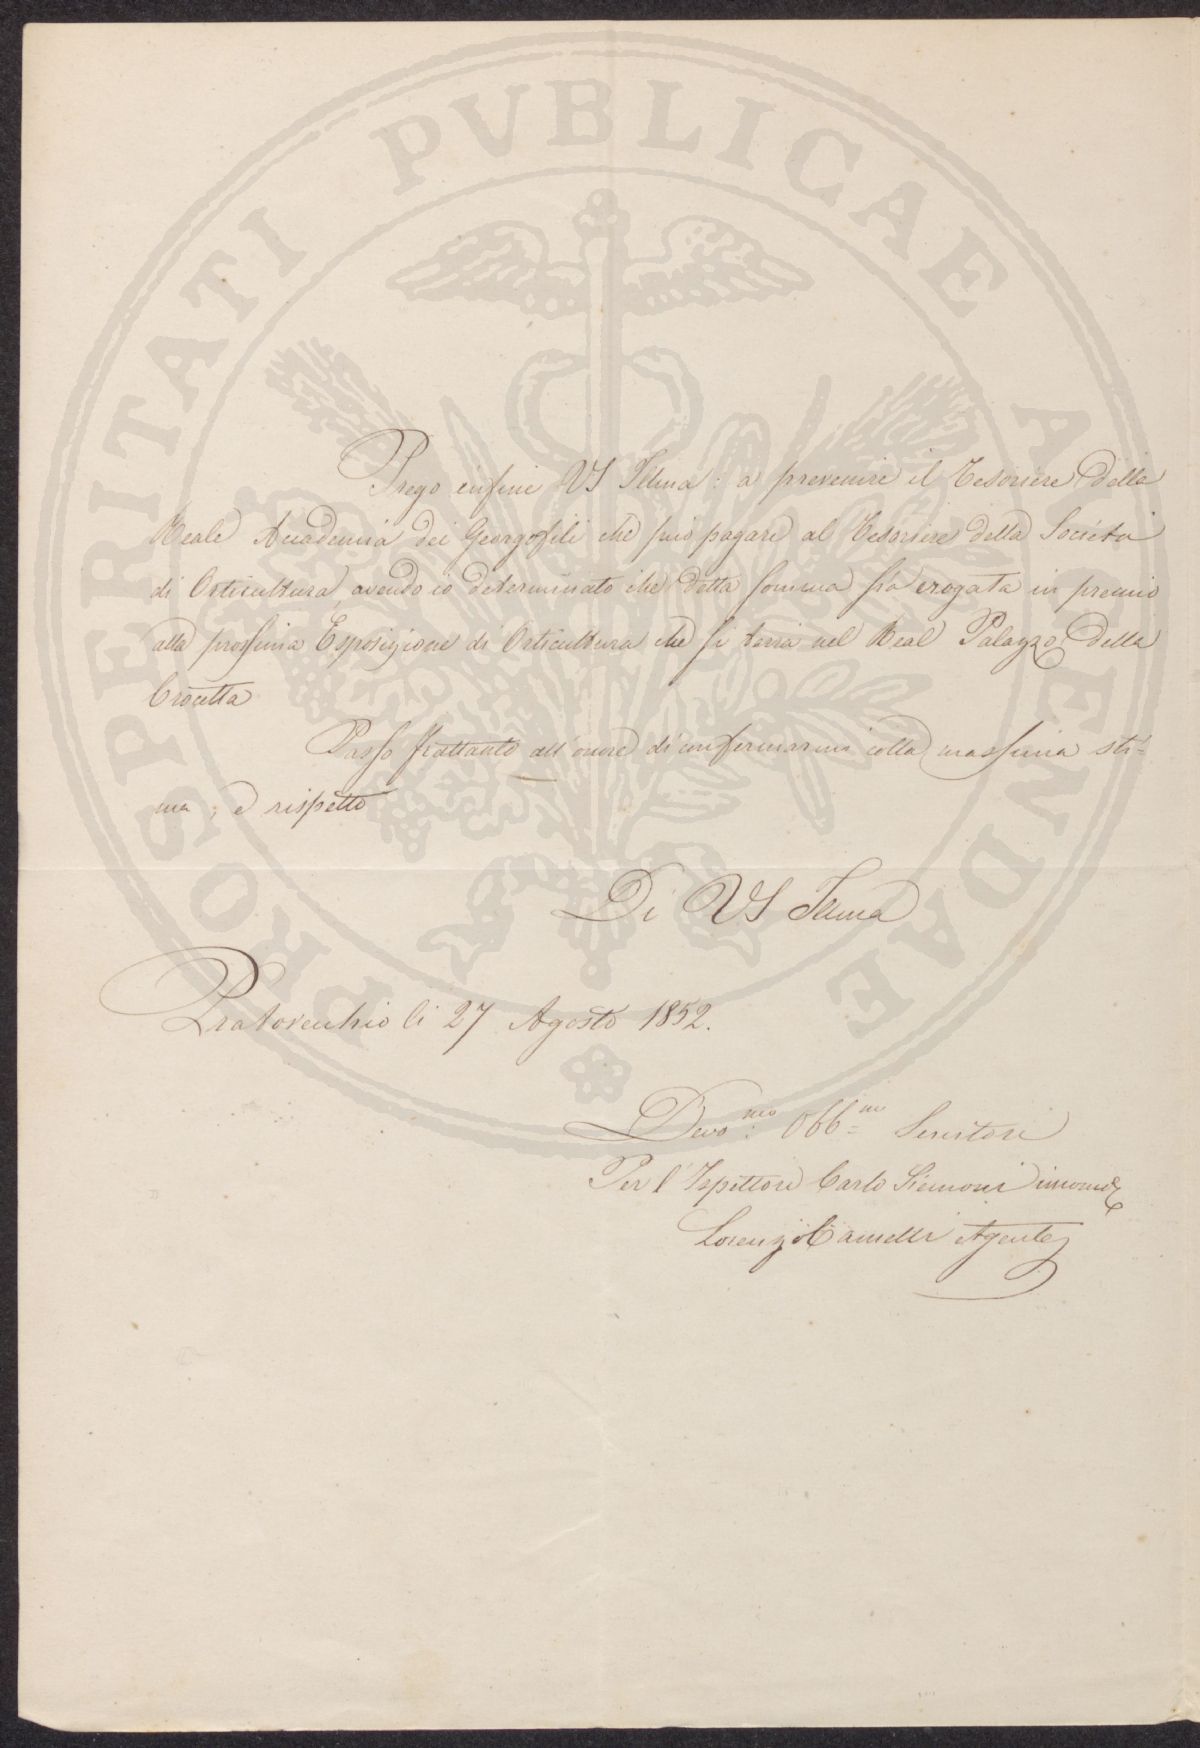 PROSPERITATI PVBLICAE AVGENDAE
Prego infine VS Illma: a prevenire il Tesoriere della
Reale Accademia dei Georgofili che può pagare al Tesoriere della Società
di Orticultura, avendo io determinato che detta somma sia erogata in premio
alla prossima Esposizione di Orticultura che si terrà nel Real Palazzo della
Crocetta
Passo frattanto all'onore di confermarmi colla massima sti-
ma, e rispetto
Di VS Illma
Pratovecchio li 27 Agosto 1852.
Devo:mo Obb=mo Servitore
Per l'Ispettore Carlo Siemoni
Lorenzo Camelli Agente